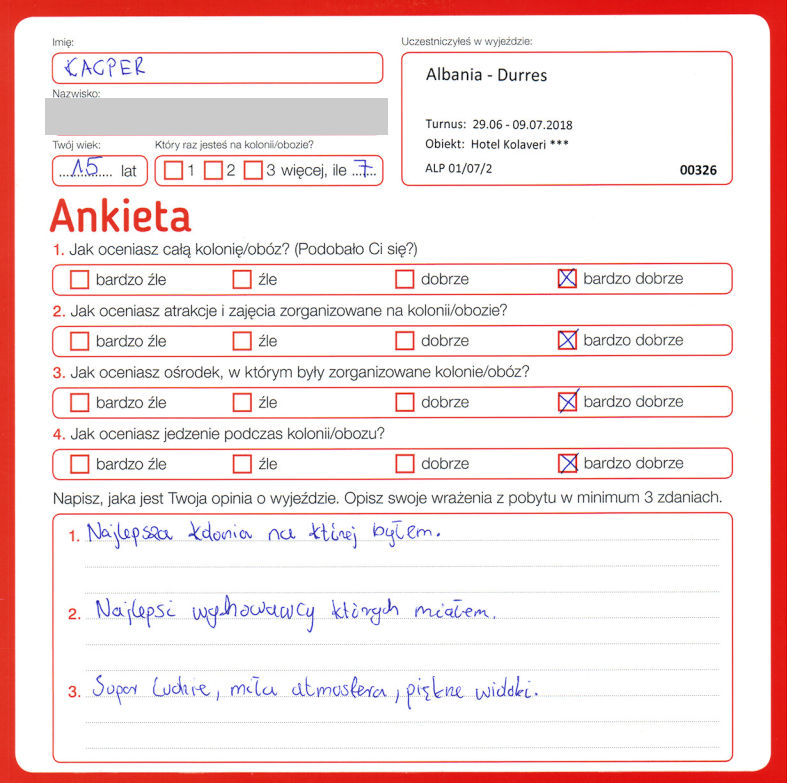 Imię:
KACPER
Uczestniczyłeś w wyjeździe:
Albania - Durres
Turnus: 29.06 - 09.07.2018
Obiekt: Hotel Kolaveri ***
ALP 01/07/2
00326
Nazwisko:
Twój wiek:
15 lat
Który raz jesteś na kolonii/obozie?
1 2 3 więcej, ile 7
Ankieta
1. Jak oceniasz całą kolonię/obóz? (Podobało Ci się?)
bardzo źle źle dobrze bardzo dobrze
2. Jak oceniasz atrakcje i zajęcia zorganizowane na kolonii/obozie?
bardzo źle źle dobrze bardzo dobrze
3. Jak oceniasz ośrodek, w którym były zorganizowane kolonie/obóz?
bardzo źle źle dobrze bardzo dobrze
4. Jak oceniasz jedzenie podczas kolonii/obozu?
bardzo źle źle dobrze bardzo dobrze
Napisz, jaka jest Twoja opinia o wyjeździe. Opisz swoje wrażenia z pobytu w minimum 3 zdaniach.
1. Najlepsza kolonia na której byłem.
2. Najlepsi wychowawcy których miałem.
3. Super ludzie, miła atmosfera, piękne widoki.